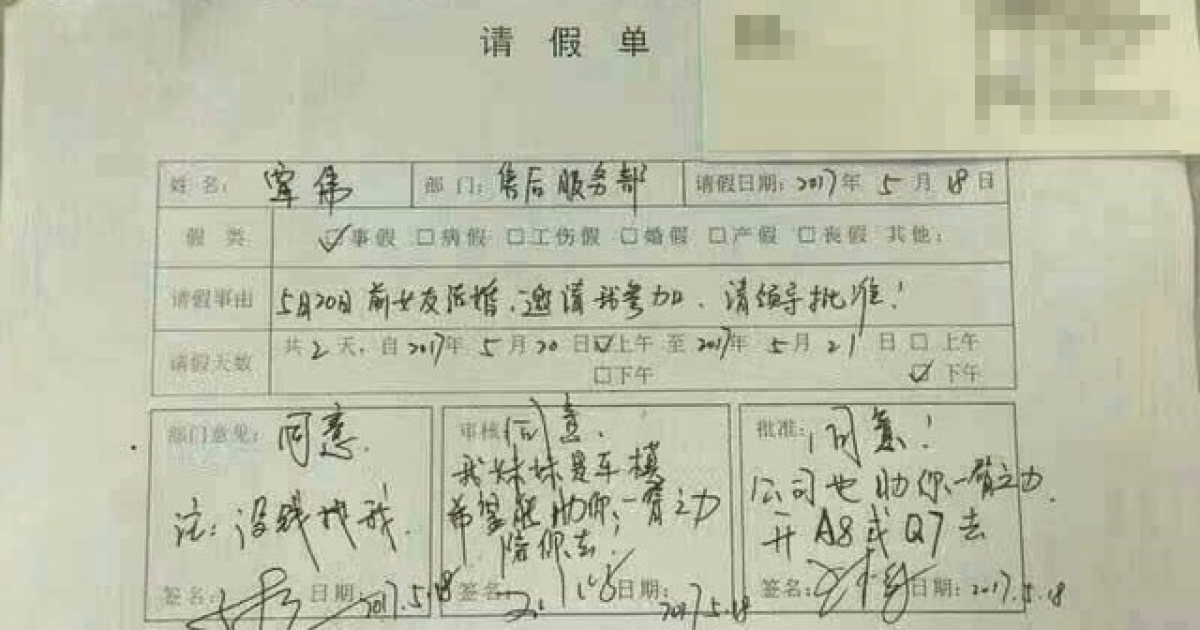 请假单
姓名：覃伟 部门：售后服务部 请假日期：2017年5月18日
假类 事假 病假 工伤假 婚假 产假 丧假 其他：
请假事由 5月20日前女友结婚、邀请我参加、请领导批准！
请假天数 共2天，自2017年5月20日 上午 至2017年5月21日 上午
下午 下午
部门意见：同意.
注：没钱找我.
签名： 日期：2017.5.18
审核 同意.
我妹妹是车模
希望能助你一臂之力
陪你去.
签名 日期：2017.5.18
批准：同意！
公司也助你一臂之力.
开A8或Q7去
签名： 日期：2017.5.18